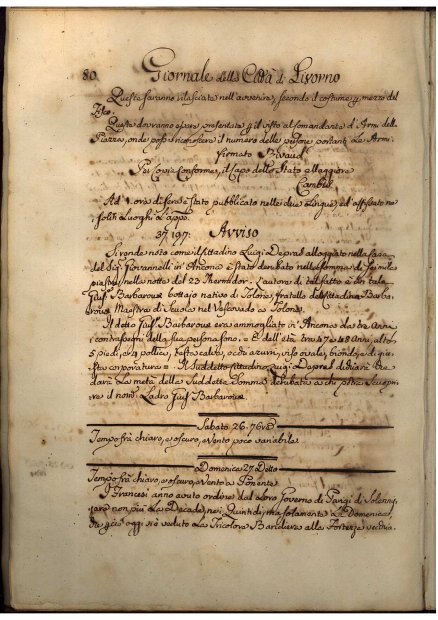 80. Giornale della Città di Livorno
Queste saranno rilasciate nell'avvenire, secondo il costume p. mezzo del
Queste dovranno essere presentate p. il visto al Comandante d'Armi della
Piazza, onde possa riconoscere il numero delle persone portanti le Armi.
firmato Rivaud
Per Copia Conforme, il Capo dello Stato Maggiore
Ad 1. ora di sera è stato pubblicato nelle due Lingue, ed affissato ne
soliti Luoghi
37. 197. Avviso
Si rende noto come il Cittadino Luigi Depral alloggiato nella Casa
del Sig. Giovannelli in Ancona è stato derubato nella somma di sei mila
piastre nella notte del 23 Thermidor. L'autore di tal fatto è un tale
Barbaroux bottajo nativo di Tolone, fratello della Cittadina Barba-
roux Maestra di Scuola nel Vescovado a Tolone.
Il detto Barbaroux era ammogliato in Ancona da tre Anni
i contrasegni della sua persona sono. = È dell'età tra 47 e 48 Anni, alto
5 piedi, e 4 pollici, testa calva, occhi azzurri, viso ovale, biondo, e di giu-
sta corporatura = Il Suddetto Cittadino Luigi Depral dichiara che
darà la metà della Suddetta Somma derubata a chi potrà scuopri-
re il nom. Ladro Barbaroux
Sabato 26. 7bre
Tempo frà chiaro, e oscuro, e Vento poco variabile
Domenica 27 Detto
Tempo frà chiaro, e oscuro, e Vento a Ponente
I Francesi anno avuto ordine dal Loro Governo di Parigi di Solenniz-
zare non più La Decade, nei Quintidi, ma solamente La Domenica,
oggi si è veduto La Tricolore Bandiera alla Fortezza vecchia.